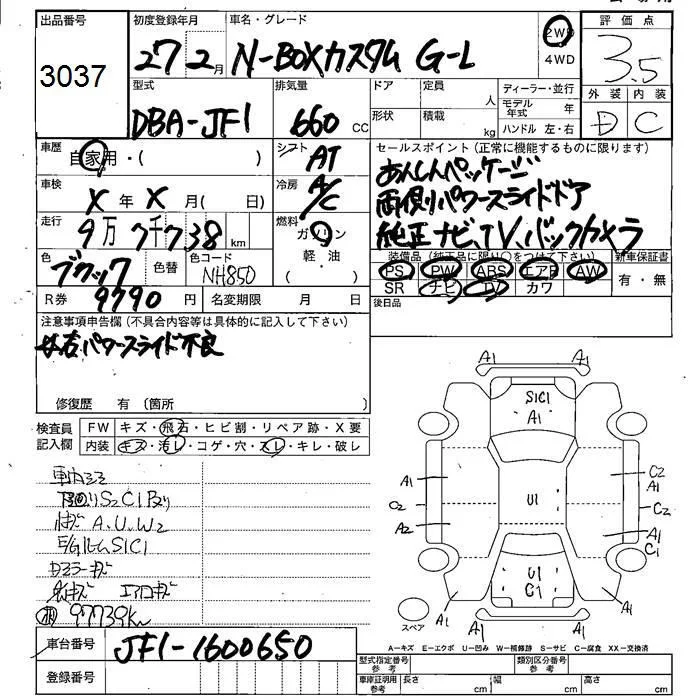 出品番号 初度登録年月 車名・グレード 評価点
3037 27 2月 N-BOXカスタム G-L 2WD 3.5
4WD
型式 排気量 ドア 定員 ディーラー・並行 外装 内装
人 モデル年式 年
DBA-JF1 660 CC 形状 積載 kg ハンドル 左・右 D C
車歴 自家用・( ) シフト AT セールスポイント(正常に機能するものに限ります)
あんしんパッケージ
車検 X年 X月( 日) 冷房 A/C 両側パワースライドドア
走行 9万7千738 km 燃料 ガソリン 純正ナビ、TV、バックカメラ
軽・油
色 色替 色コード NH850 装備品(純正品に限り○をつけて下さい) 新車保証書
( ) PS PW ABS エアB AW 有・無
R券 9790円 名変期限 月 日 SR ナビ TV カワ
後日品
注意事項申告欄(不具合内容等は具体的に記入して下さい)
左右パワースライド不良
修復歴 有〔箇所 〕
検査員 FW キズ・飛石・ヒビ割・リペア跡・X要
記入欄 内装 キズ・汚レ・コゲ・穴・スレ・キレ・破レ
A1 A1
S1C1
A1
下回りS2C1
A.U.W2
E/GルームS1C1
97739km
A1 C2
A1
C2 U1 C2
A2 A1
C1
U1
C1
A1 A1 A1 A1
スペア
A−キズ E−エクボ U−凹み W−補修跡 S−サビ C−腐食 XX−交換済
車台番号 JF1-1600650
登録番号
型式指定番号 参考 類別区分番号 参考
車庫証明用 参考 長さ cm 幅 cm 高さ cm